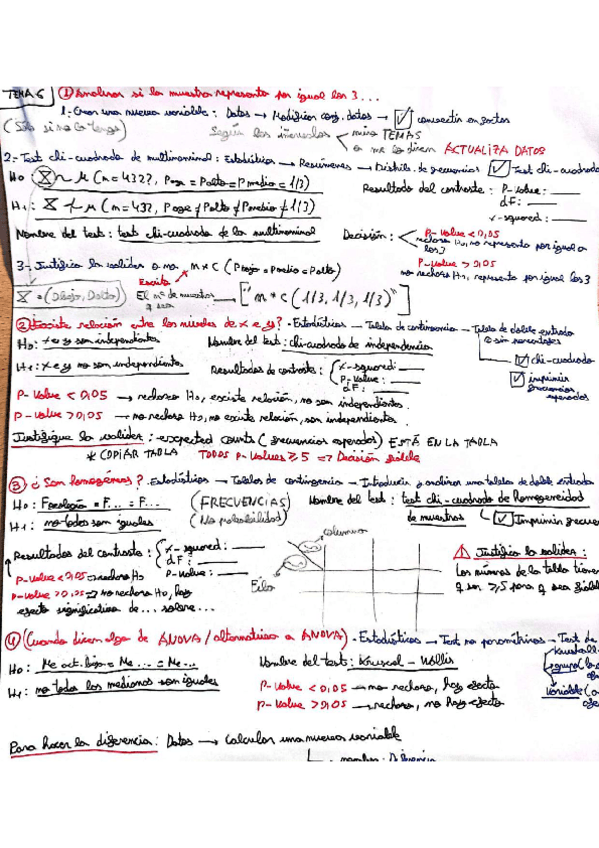 TEMA 6 ① Analizar si la muestra representa por igual los 3...
1- Crear una nueva variable : Datos → Modificar conj. datos → ☑ convertir en factor
(Solo si no la tengo) Según los intervalos < mira TEMAS
o me lo dicen ACTUALIZA DATOS
2- Test chi-cuadrado de multinominal : Estadísticos → Resúmenes → Distrib. de frecuencias ☑ Test chi-cuadrado
H0 : X ~ M (n=432?, Pbajo = Palto = Pmedio = 1/3) Resultado del contraste : P-value : ___
df : ___
H1 : X ≁ M (n=432, Pbajo ≠ Palto ≠ Pmedio ≠ 1/3) x-squared : ___
Nombre del test : test chi-cuadrado de la multinominal Decisión : < P-value < 0,05
rechazo H0, no representa por igual a los 3
P-value > 0,05
no rechazo H0, representa por igual los 3
3- Justifica la validez
Escrito
X = (Dbajo, Dalto) El nº de muestras ["n * C (1/3, 1/3, 1/3)"]
② ¿Existe relación entre los niveles de x e y? - Estadísticos → Tabla de contingencia → Tabla de doble entrada
H0 : x e y son independientes Nombre del test : chi-cuadrado de independencia
sin porcentajes
☑ chi-cuadrado
H1 : x e y no son independientes Resultados de contraste : { x-squared : ___
P-value : ___
df : ___
☑ imprimir frecuencias esperadas
P-value < 0,05 → rechazo H0, existe relación, no son independientes
P-value > 0,05 → no rechazo H0, no existe relación, son independientes
Justifique la validez : expected counts (frecuencias esperadas) ESTÁ EN LA TABLA
* COPIAR TABLA TODOS P-values ≥ 5 => Decisión fiable
③ ¿Son homogéneos? Estadísticos → Tablas de contingencia → Introducir y analizar una tabla de doble entrada
H0 : = F... = F... (FRECUENCIAS) Nombre del test : test chi-cuadrado de Homogeneidad
H1 : no todos son iguales (No probabilidad) de muestras ☑ Imprimir frecuen
columnas
Resultados del contraste : { x-squared : ___
df : ___
P-value : ___
Fila
⚠ Justifica la validez :
P-value < 0,05 => rechazo H0
Los números de la tabla tienen
P-value > 0,05 => no rechazo H0, hay
q ser ≥,5 para q sea fiable
efecto significativo de... sobre...
④ (Cuando dicen algo de ANOVA / alternativa a ANOVA) - Estadísticos → Test no paramétricos → Test de
Kruskall-
H0 : Me = Me... = Me... Nombre del test : Kruscal-Wallis
H1 : no todas las medianas son iguales P-value < 0,05 → no rechazo, hay efecto
variable (
P-value > 0,05 → rechazo, no hay efecto
Para hacer la diferencia : Datos → calcular una nueva variable
nombre : Diferencia